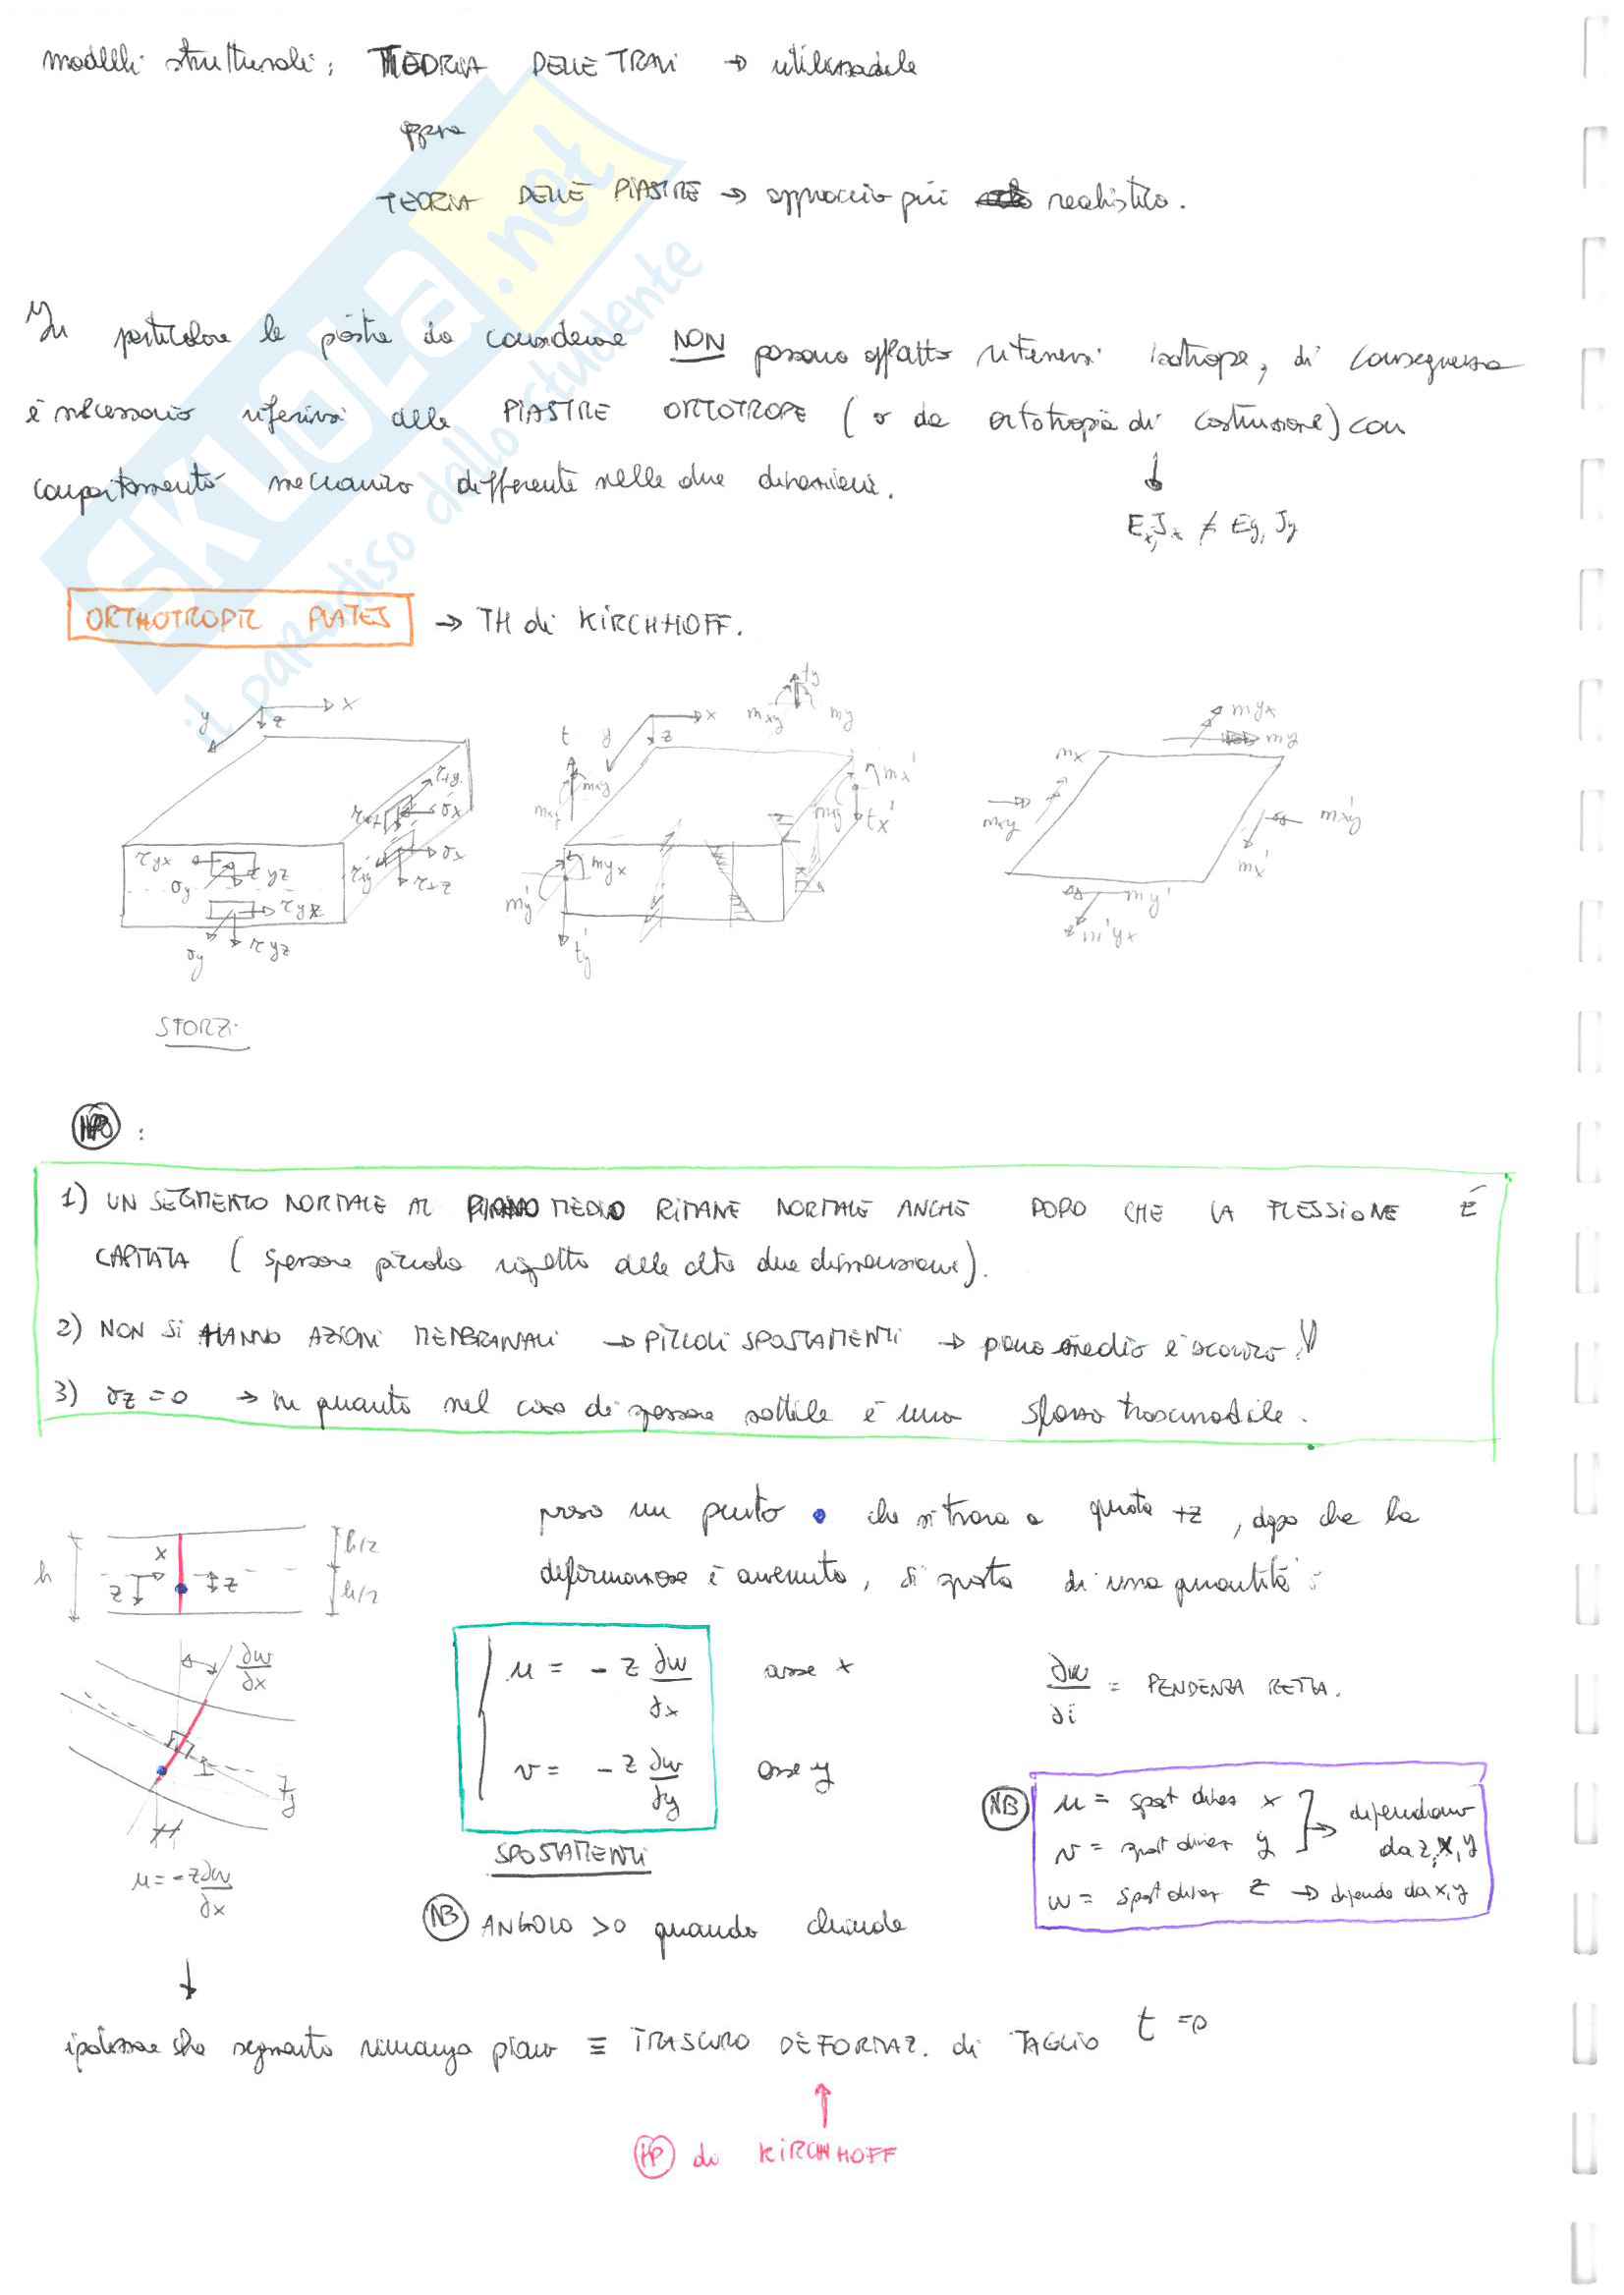 modelli strutturali: TEORIA DELLE TRAVI → utilizzabile
oppure
TEORIA DELLE PIASTRE → approccio più realistico.
In particolare le piastre da considerare NON possono affatto ritenersi isotrope, di conseguenza
è necessario riferirsi alle PIASTRE ORTOTROPE ( o da ortotropia di costruzione) con
comportamento meccanico differente nelle due dimensioni.
↓
Ex, Jx ≠ Ey, Jy
ORTHOTROPIC PLATES → TH di KIRCHHOFF.
x
y
z
τxy
τxz
σx
τyx
σy
τyz
σx
τxy
τxz
τyx
σy
τyz
t
y
x
z
mxy
ty
my
mx'
tx'
myx
my'
ty'
mx
myx
my
mxy
mxy'
mx'
my'
m'yx
SFORZI
HP :
1) UN SEGMENTO NORMALE AL PIANO MEDIO RIMANE NORMALE ANCHE DOPO CHE LA FLESSIONE È
CAPITATA ( spessore piccolo rispetto alle altre due dimensioni).
2) NON SI HANNO AZIONI MEMBRANALI → PICCOLI SPOSTAMENTI → piano medio è scarico !!
3) σz = 0 → in quanto nel caso di spessore sottile è uno sforzo trascurabile.
preso un punto • che si trova a quota +z , dopo che la
deformazione è avvenuta, si sposta di una quantità :
h
x
z
z
h/2
h/2
∂w/∂x
u = -z ∂w/∂x
u = - z ∂w/∂x asse x
v = - z ∂w/∂y asse y
SPOSTAMENTI
∂w/∂i = PENDENZA RETTA.
NB
u = spost direz x
v = spost direz y
dipendono da z, x, y
w = spost direz z → dipende da x, y
NB ANGOLO >0 quando chiude
↓
ipotizzare che segmento rimanga piano ≡ TRASCURO DEFORMAZ. di TAGLIO t = 0
↑
HP di KIRCHHOFF
SKUOLA.net
il paradiso dello studente